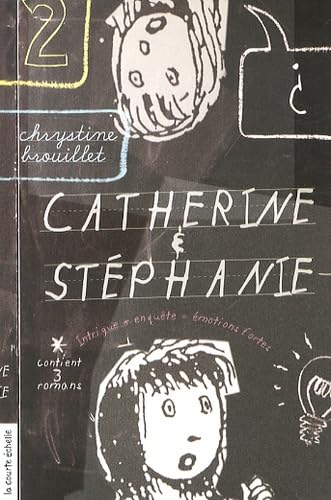 2
¿
chrystine
brouillet
CATHERINE
&
STÉPHANIE
Intrigue + enquête = émotions fortes
*
contient
3
romans
VE
IE
la courte échelle